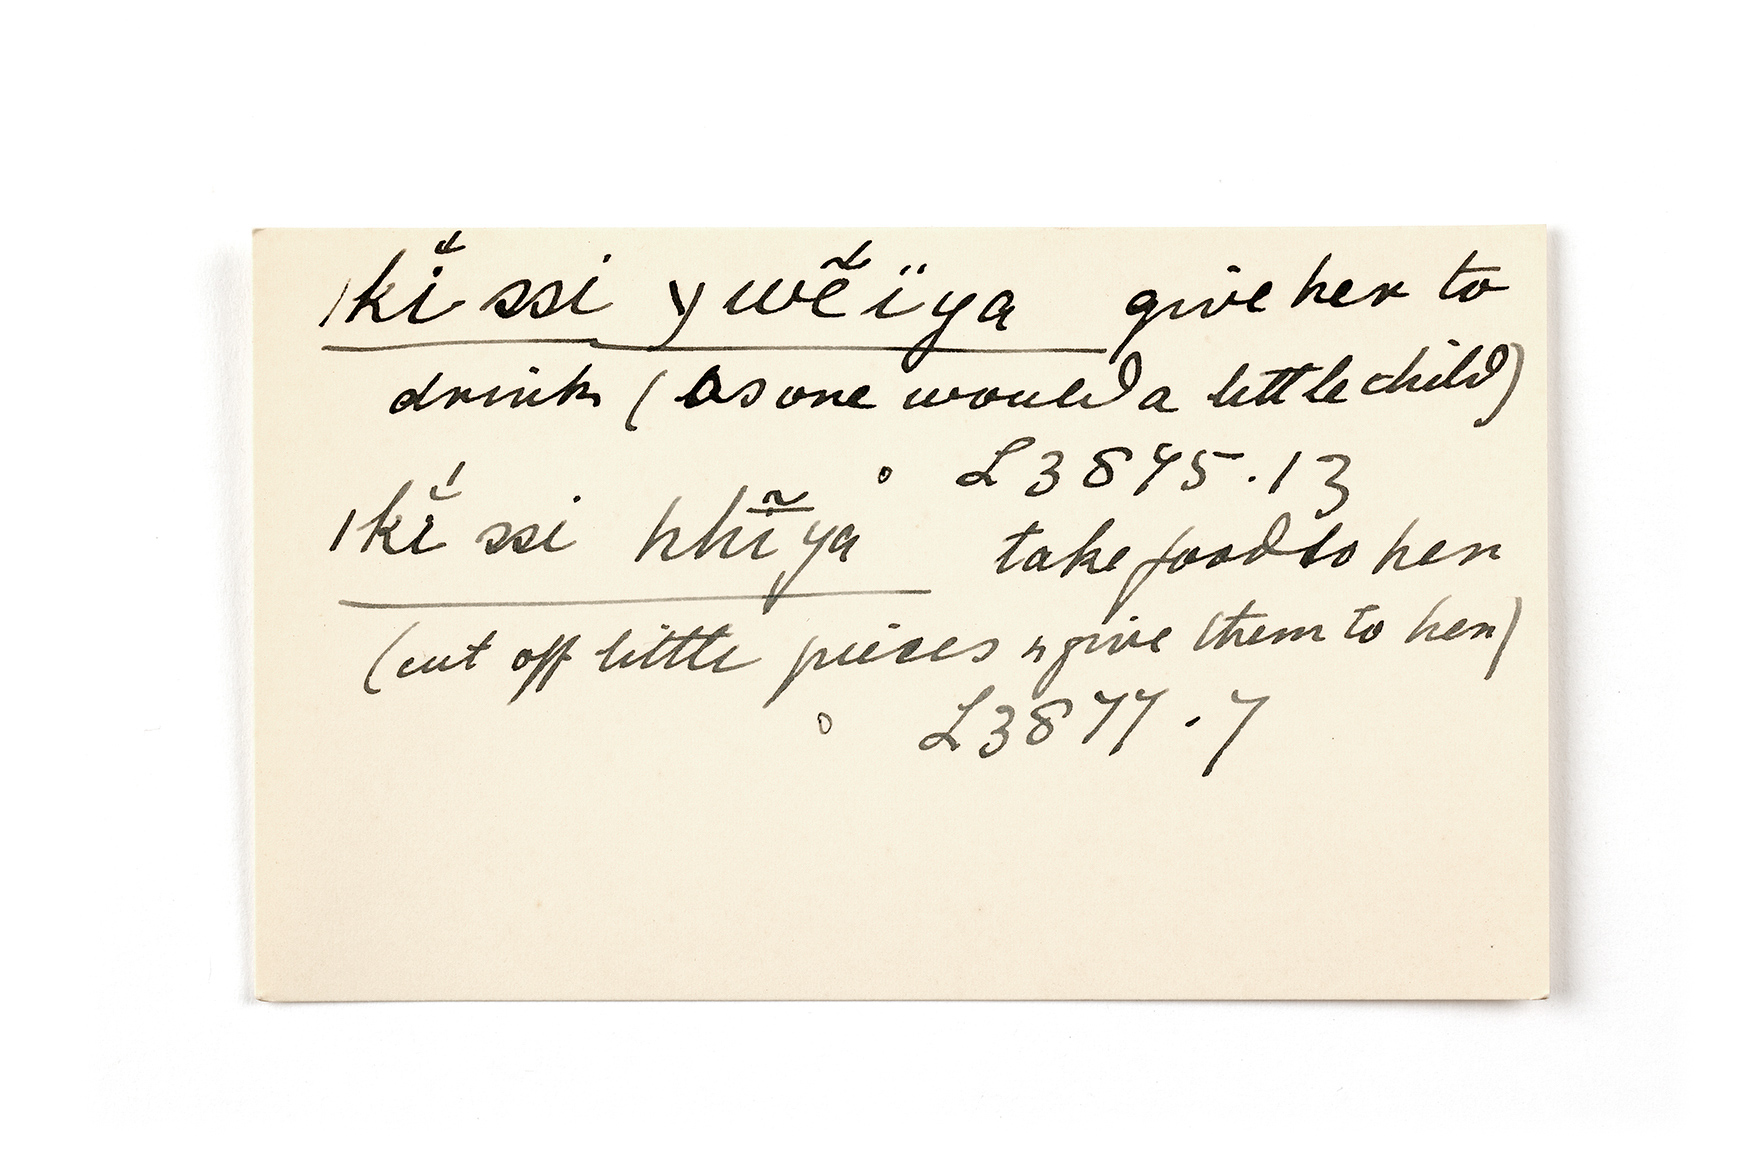 |kĭ ssi y wẽ̆ ïya give her to
drink (as one would a little child)
L3875.13
|kĭ ssi hhĩ̄ya take food to her
(cut off little pieces & give them to her)
L3877.7